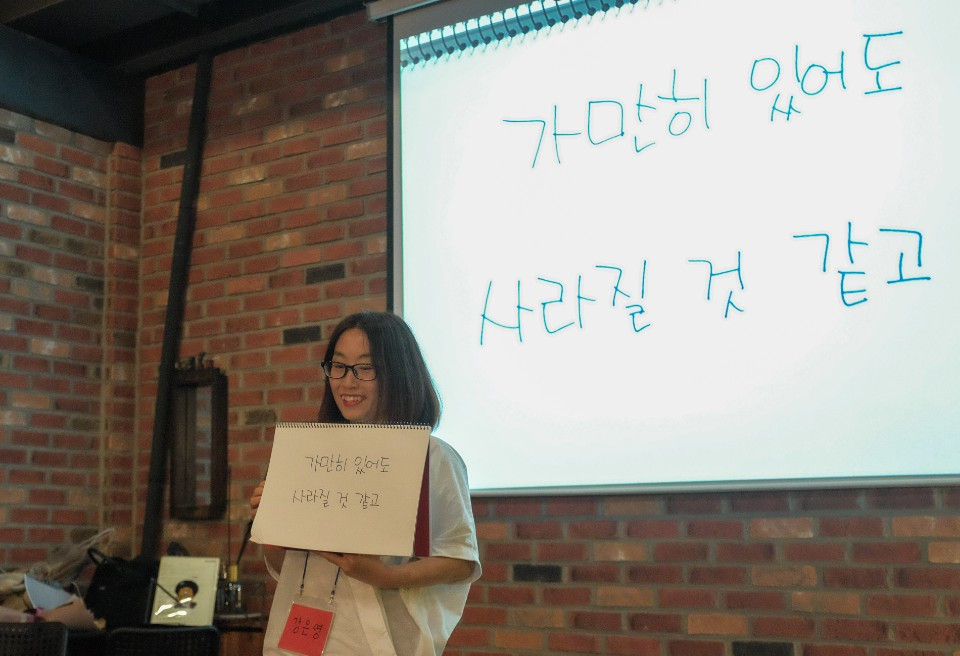 가만히 있어도
사라질 것 같고
가만히 있어도
사라질 것 같고